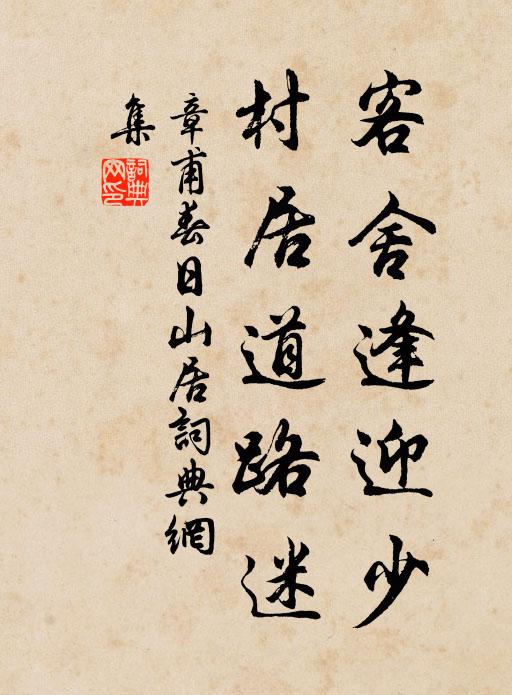 客舍逢迎少
村居道路迷
章甫春日山居詞典網
集
詞典
网印